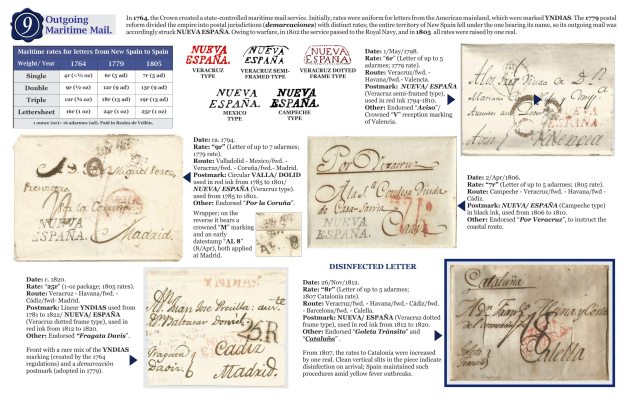 9 Outgoing
Maritime Mail.
In 1764, the Crown created a state-controlled maritime mail service. Initially, rates were uniform for letters from the American mainland, which were marked YNDIAS. The 1779 postal
reform divided the empire into postal jurisdictions (demarcaciones) with distinct rates; the entire territory of New Spain fell under the one bearing its name, so its outgoing mail was
accordingly struck NUEVA ESPAÑA. Owing to warfare, in 1802 the service passed to the Royal Navy, and in 1805 all rates were raised by one real.
Maritime rates for letters from New Spain to Spain
Weight/ Year 1764 1779 1805
Single 4r (<½ oz) 6r (5 ad) 7r (5 ad)
Double 9r (½ oz) 12r (9 ad) 13r (9 ad)
Triple 12r (¾ oz) 18r (13 ad) 19r (13 ad)
Lettersheet 16r (1 oz) 24r (1 oz) 25r (1 oz)
1 ounce (oz)= 16 adarmes (ad). Paid in Reales de Vellón.
NUEVA
ESPAÑA.
VERACRUZ
TYPE
NUEVA
ESPAÑA.
VERACRUZ SEMI-
FRAMED TYPE
NUEVA
ESPAÑA
VERACRUZ DOTTED
FRAME TYPE
NUEVA
ESPAÑA.
MEXICO
TYPE
NUEVA
ESPAÑA.
CAMPECHE
TYPE
Date: 1/May/1798.
"6r" (Letter of up to 5
adarmes; 1779 rate).
Route: Veracruz/fwd. -
Havana/fwd. - Valencia.
Postmark: NUEVA/ ESPAÑA
(Veracruz semi-framed type),
used in red ink 1794-1810.
Other: Endorsed "Aviso"/
Crowned "V" reception marking
of Valencia.
NUEVA
ESPAÑA.
Valencia
Date: ca. 1794.
"9r" (Letter of up to 7 adarmes;
1779 rate).
Route: Valladolid - Mexico/fwd. -
Veracruz/fwd. - Coruña/fwd.- Madrid.
Postmark: Circular VALLA/ DOLID
used in red ink from 1785 to 1801/
NUEVA/ ESPAÑA (Veracruz type).
used from 1785 to 1801.
Other: Endorsed "Por la Coruña".
Wrapper; on the
reverse it bears a
crowned "M" marking
and an early
datestamp "AL 8"
(8/Apr), both applied
at Madrid.
NUEVA
ESPAÑA.
Madrid.
Por Veracruz
NUEVA
ESPAÑA.
Cadiz
Date: 2/Apr/1806.
"7r" (Letter of up to 5 adarmes; 1805 rate).
Route: Campeche - Veracruz/fwd. - Havana/fwd -
Cádiz.
Postmark: NUEVA/ ESPAÑA (Campeche type)
in black ink, used from 1806 to 1810.
Other: Endorsed "Por Veracruz", to instruct the
coastal route.
Date: c. 1820.
"25r" (1-oz package; 1805 rates).
Route: Veracruz - Havana/fwd. -
Cádiz/fwd- Madrid.
Postmark: Linear YNDIAS used from
1781 to 1822/ NUEVA/ ESPAÑA
(Veracruz dotted frame type), used in
red ink from 1812 to 1820.
Other: Endorsed "Fragata Davis".
Front with a rare mix of the YNDIAS
marking (created by the 1764
regulations) and a demarcación
postmark (adopted in 1779).
YNDIAS
Cadiz
Madrid.
DISINFECTED LETTER
Date: 26/Nov/1812.
"8r" (Letter of up to 5 adarmes;
1807 Catalonia rate).
Route: Veracruz/fwd. - Havana/fwd. - Cádiz/fwd.
- Barcelona/fwd. - Calella.
Postmark: NUEVA/ ESPAÑA (Veracruz dotted
frame type), used in red ink from 1812 to 1820.
Other: Endorsed "Goleta Tránsito" and
"Cataluña".
From 1807, the rates to Catalonia were increased
by one real. Clean vertical slits in the piece indicate
disinfection on arrival; Spain maintained such
procedures amid yellow fever outbreaks.
Cataluña
8
Calella